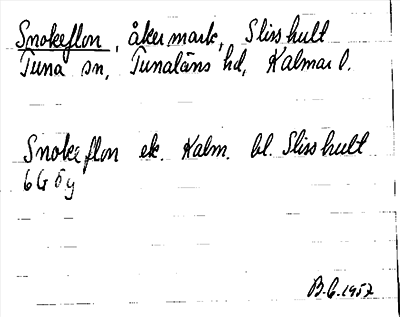 Snokeflon, åkermark, Slisshult
Tuna sn, Tunaläns hd, Kalmar l.
Snokeflon ek. Kalm. bl. Slisshult
6G 5 g
B.G. 1957